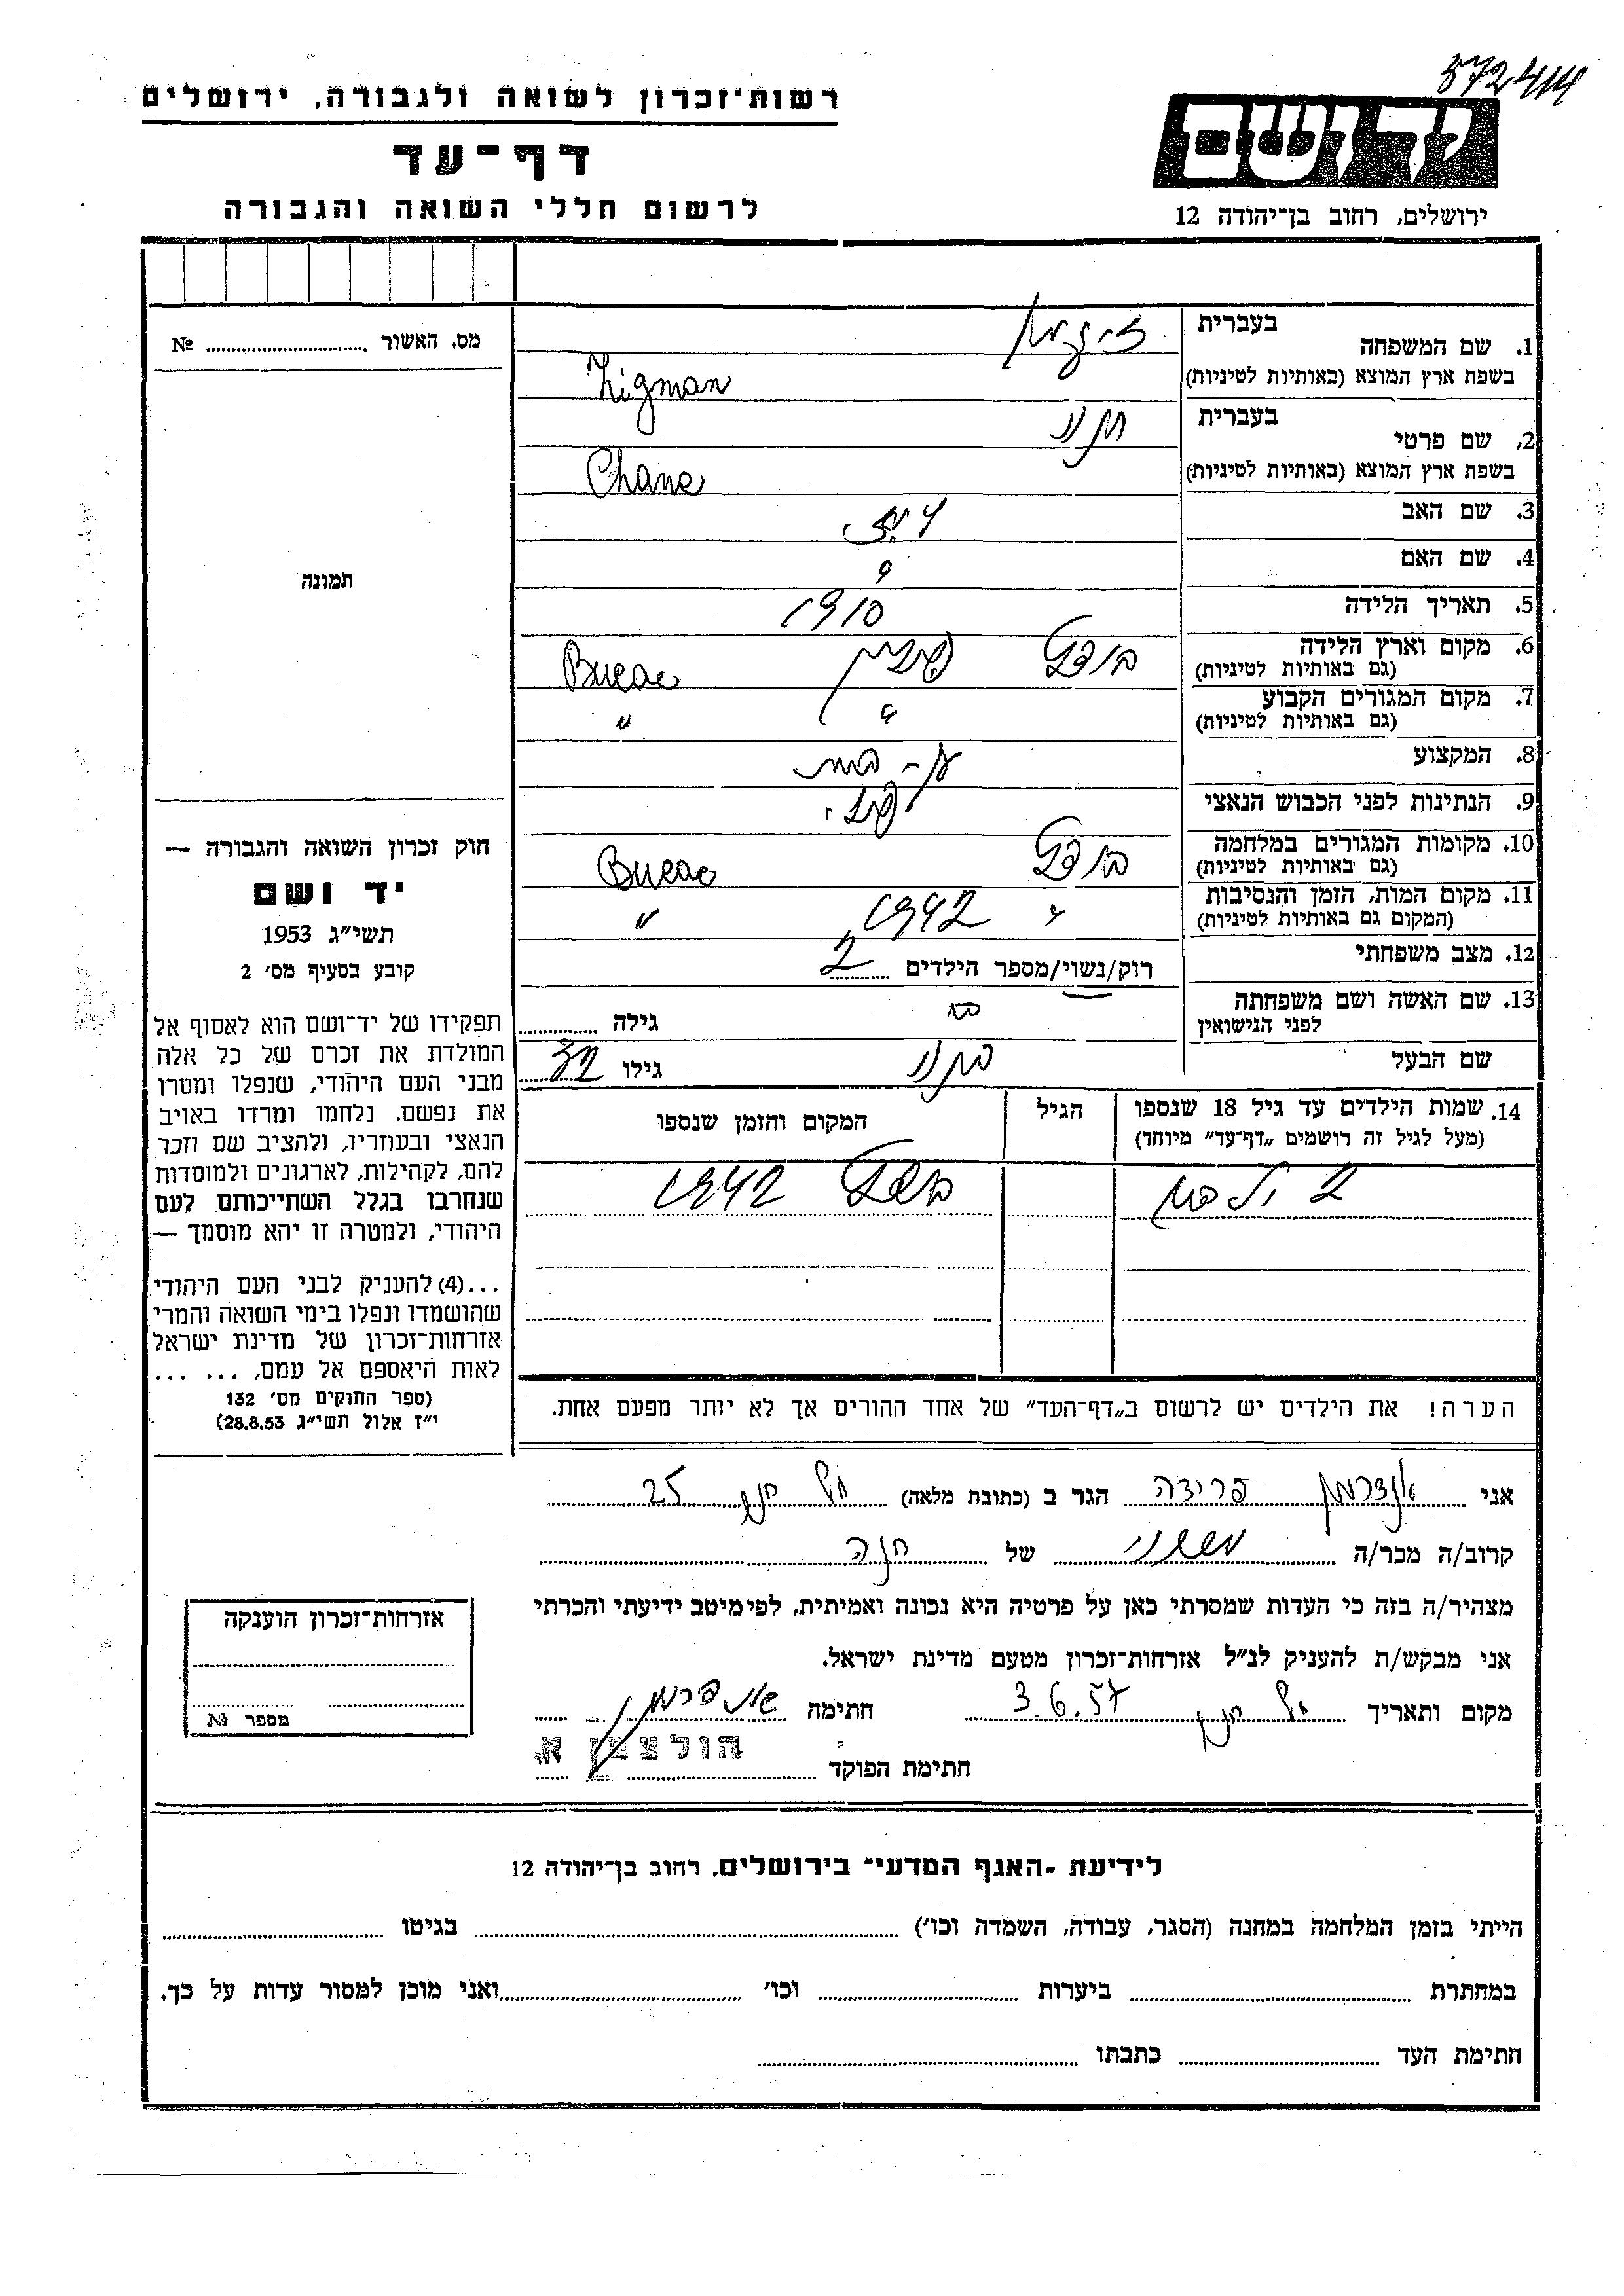 572414
רשות־זכרון לשואה ולגבורה, ירושלים
דף־עד
לרשום חללי השואה והגבורה
ידושם
ירושלים, רחוב בן־יהודה 12
מס. האשור № 
תמונה
חוק זכרון השואה והגבורה —
יד ושם
תשי״ג 1953
קובע בסעיף מס׳ 2
תפקידו של יד־ושם הוא לאסוף אל
המולדת את זכרם של כל אלה
מבני העם היהודי, שנפלו ומסרו
את נפשם. נלחמו ומרדו באויב
הנאצי ובעוזריו, ולהציב שם וזכר
להם, לקהילות, לארגונים ולמוסדות
שנחרבו בגלל השתייכותם לעם
היהודי, ולמטרה זו יהא מוסמך —
...(4) להעניק לבני העם היהודי
שהושמדו ונפלו בימי השואה והמרי
אזרחות־זכרון של מדינת ישראל
לאות היאספם אל עמם, ... ...
(ספר החוקים מס׳ 132
י״ז אלול תשי״ג 28.8.53)
1. שם המשפחה בעברית זיגמן
בשפת ארץ המוצא (באותיות לטיניות) Zigman
2. שם פרטי בעברית
בשפת ארץ המוצא (באותיות לטיניות) Chane
3. שם האב
4. שם האם ?
5. תאריך הלידה 1910
6. מקום וארץ הלידה
(גם באותיות לטיניות) פולין
7. מקום המגורים הקבוע
(גם באותיות לטיניות) " "
8. המקצוע
9. הנתינות לפני הכבוש הנאצי
10. מקומות המגורים במלחמה
(גם באותיות לטיניות)
11. מקום המות, הזמן והנסיבות
(המקום גם באותיות לטיניות) " 1942 "
12. מצב משפחתי רוק/נשוי/מספר הילדים 2
13. שם האשה ושם משפחתה
לפני הנישואין גילה
שם הבעל גילו 32
14. שמות הילדים עד גיל 18 שנספו
(מעל לגיל זה רושמים „דף־עד״ מיוחד)
הגיל
המקום והזמן שנספו
2 ילדים 1942
הערה! את הילדים יש לרשום ב„דף־העד״ של אחד ההורים אך לא יותר מפעם אחת.
אני פרידה הגר ב (כתובת מלאה) 25
קרוב/ה מכר/ה של חנה
מצהיר/ה בזה כי העדות שמסרתי כאן על פרטיה היא נכונה ואמיתית, לפי מיטב ידיעתי והכרתי
אני מבקש/ת להעניק לנ״ל אזרחות־זכרון מטעם מדינת ישראל.
מקום ותאריך 3.6.57 חתימה
חתימת הפוקד הולצמן א.
אזרחות־זכרון הוענקה
מספר №
לידיעת ־האגף המדעי־ בירושלים, רחוב בן־יהודה 12
הייתי בזמן המלחמה במחנה (הסגר, עבודה, השמדה וכו׳) בגיטו
במחתרת ביערות וכו׳ ואני מוכן למסור עדות על כך.
חתימת העד כתבתו